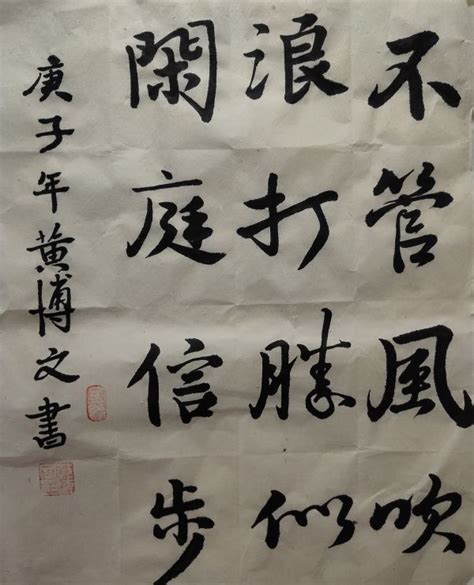 不管風吹
浪打勝似
閑庭信步
庚子年黄博文書